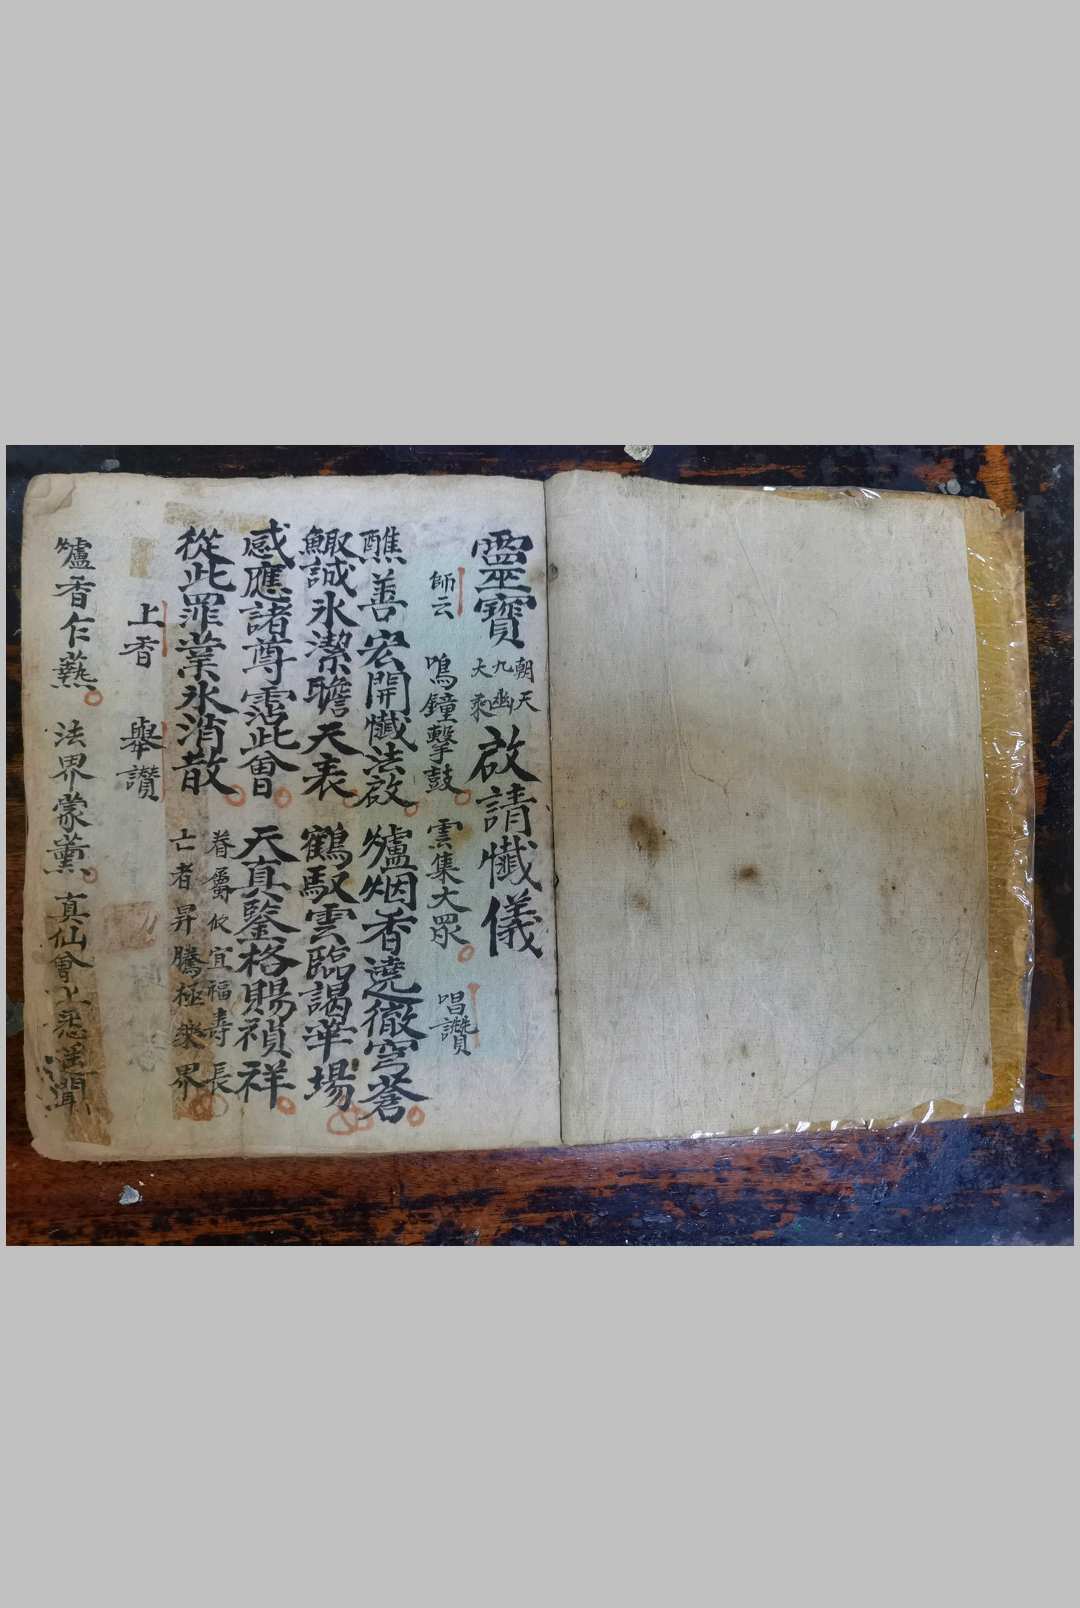 靈寶朝天九幽大乘啟請懺儀
師云 鳴鐘擊鼓 雲集大眾 唱讚
醮善宏開懺法啟 爐烟香遶徹穹蒼
鯫誠氷潔瞻天表 鶴馭雲臨謁華場
感應諸尊霑此會 天真鑒格賜禎祥
從此罪業氷消散 眷屬攸宜福壽長 亡者昇騰極樂界
上香 舉讚
爐香乍爇 法界蒙薰 真仙會上悉遙聞